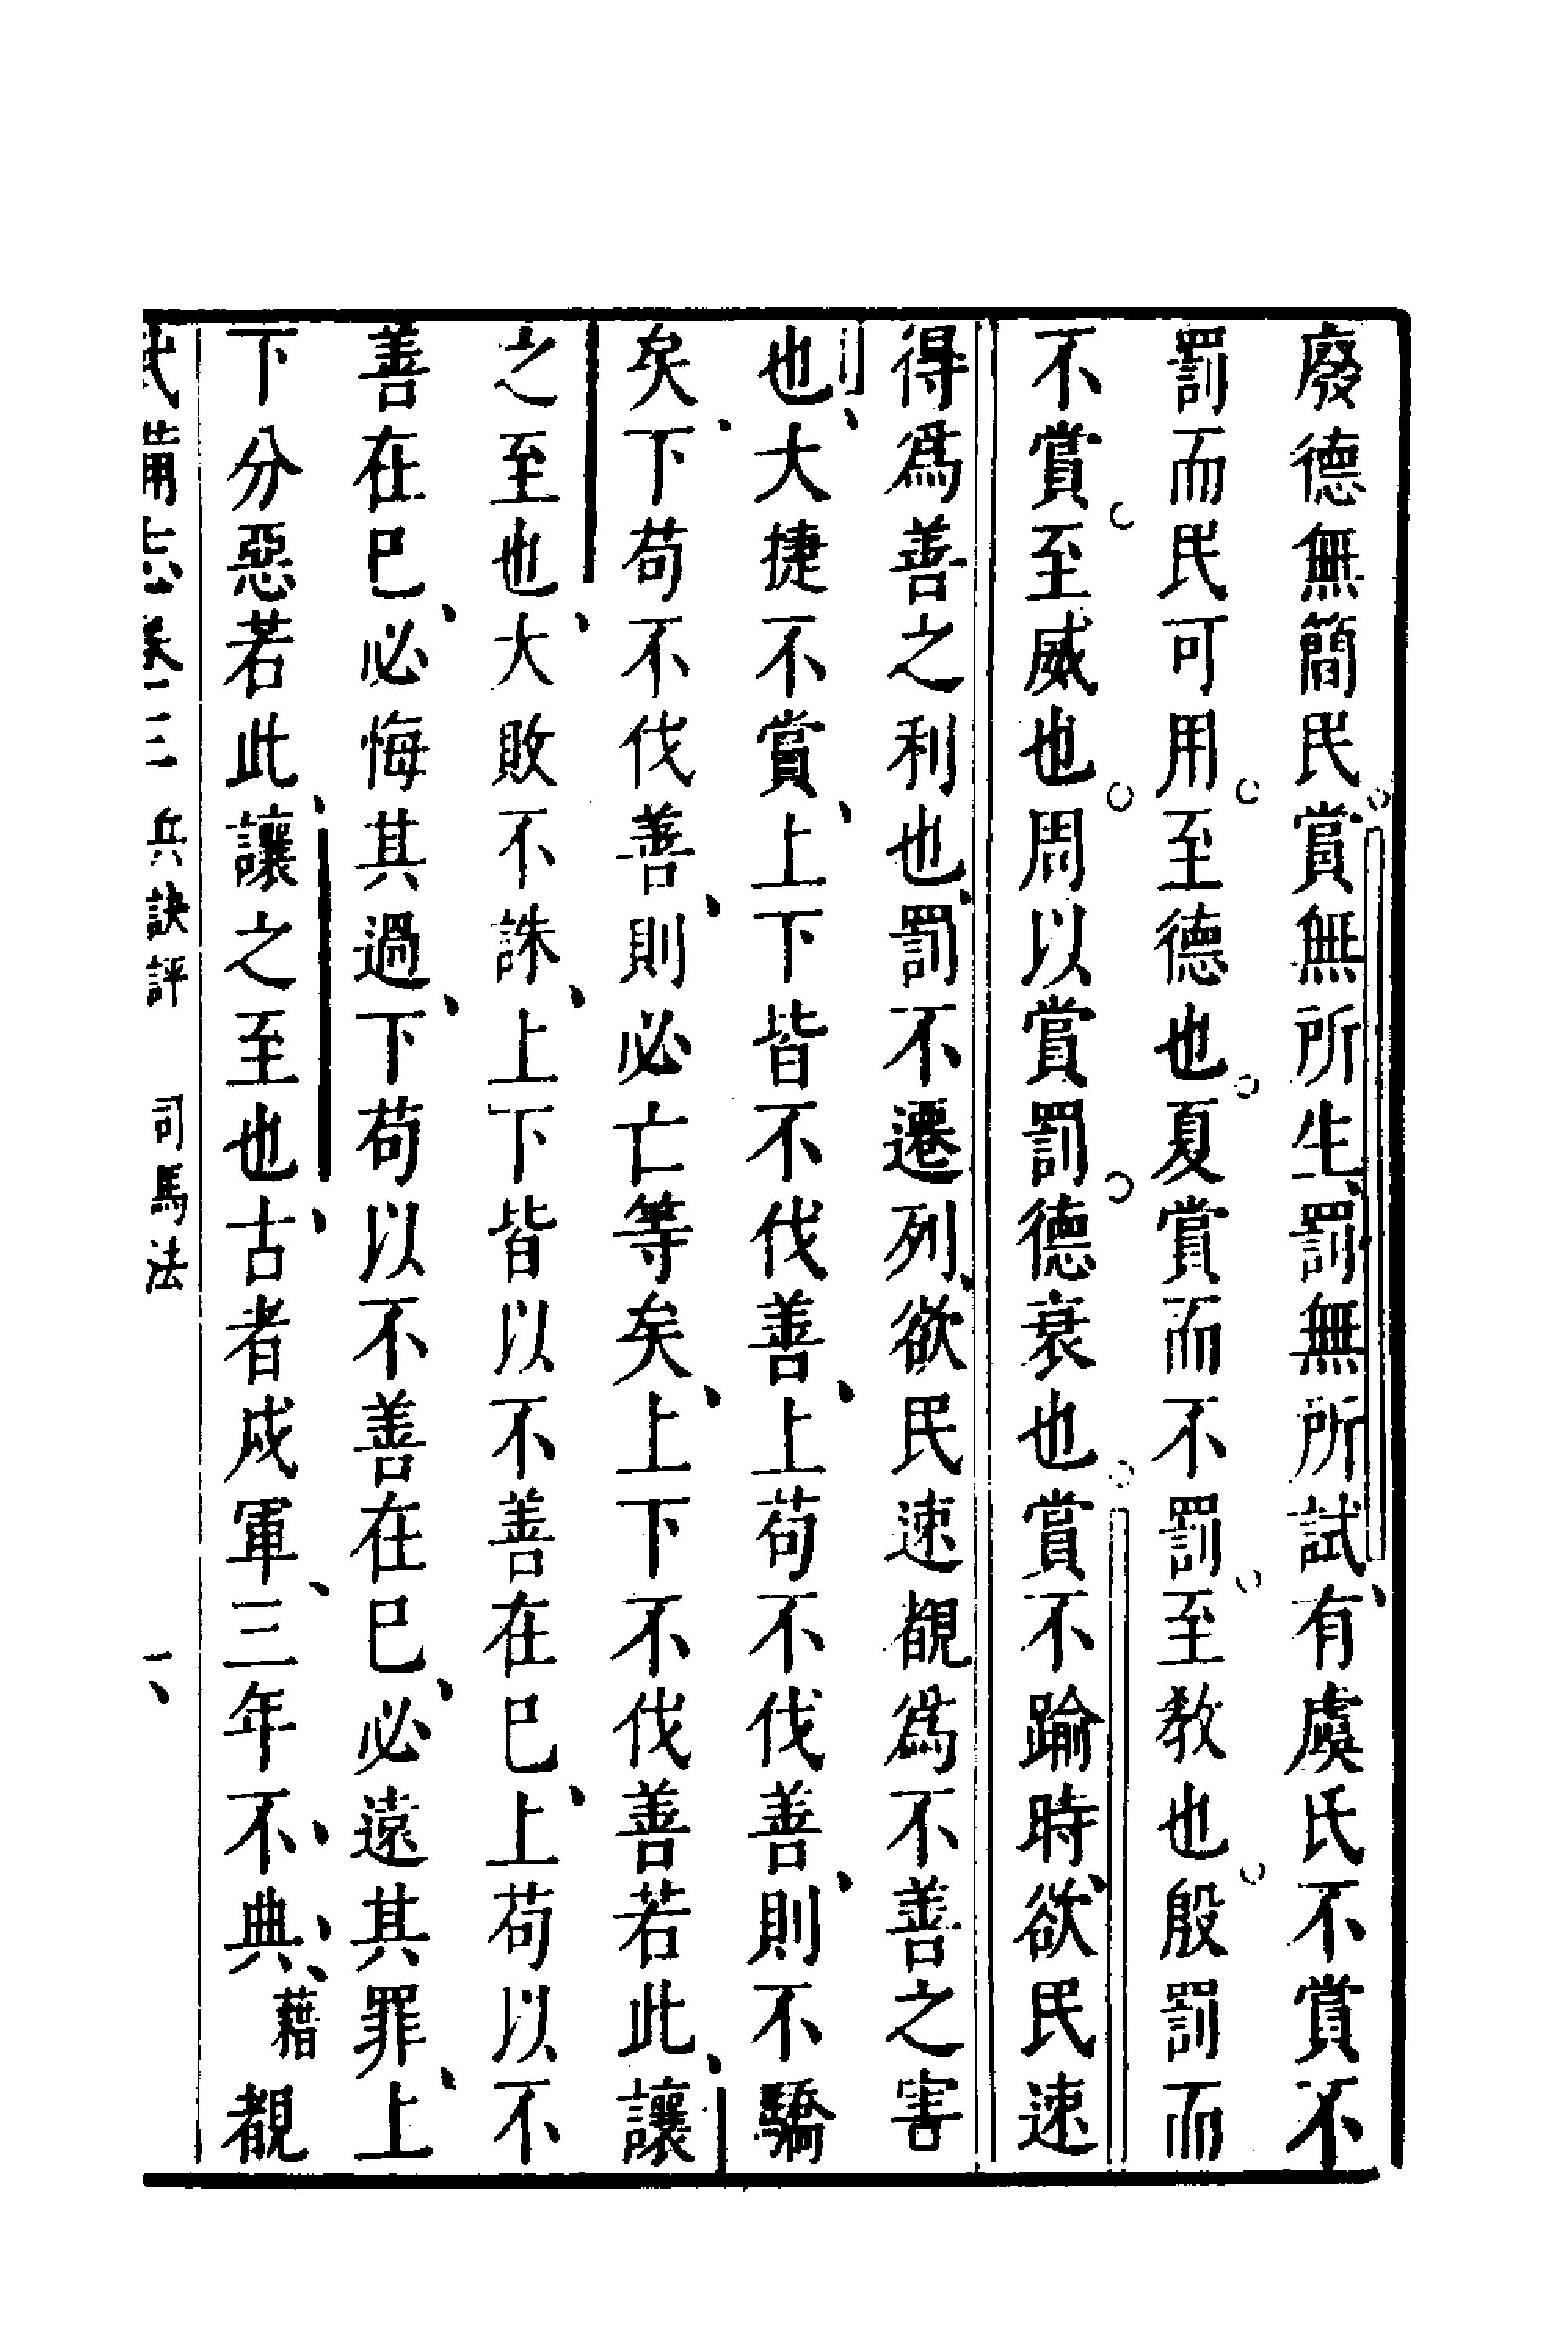 廢德無簡民賞無所生罰無所試有虞氏不賞不
罰而民可用至德也夏賞而不罰至教也殷罰而
不賞至威也周以賞罰德衰也賞不踰時欲民速
得爲善之利也罰不遷列欲民速覩爲不善之害
也大捷不賞上下皆不伐善上苟不伐善則不驕
矣下苟不伐善則必亡等矣上下不伐善若此讓
之至也大敗不誅上下皆以不善在巳上苟以不
善在巳必悔其過下苟以不善在巳必遠其罪上
下分惡若此讓之至也古者戍軍三年不典藉覩
武備志卷三 兵訣評 司馬法